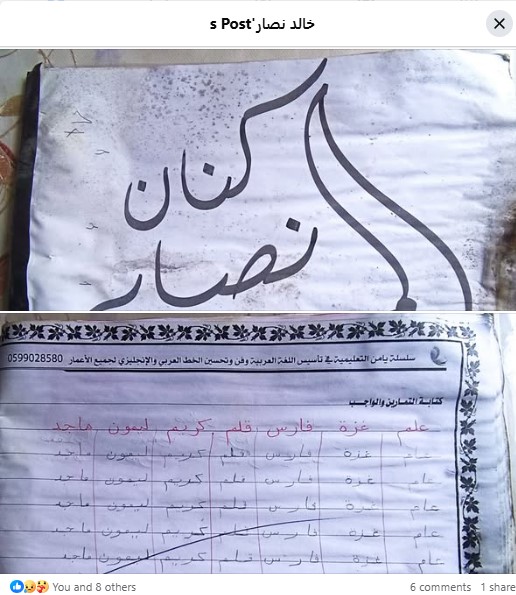 خالد نصار's Post
كنان
نصار
سلسلة يامن التعليمية في تأسيس اللغة العربية وفن وتحسين الخط العربي والإنجليزي لجميع الأعمار 0599028580
كتابة التمارين والواجب
علم غزة فارس قلم كريم ليمون ماجد
علم غزة فارس قلم كريم ليمون ماجد
علم غزة فارس قلم كريم ليمون ماجد
علم غزة فارس قلم كريم ليمون ماجد
علم غزة فارس قلم كريم ليمون ماجد
علم غزة فارس قلم كريم ليمون ماجد
You and 8 others 6 comments 1 share